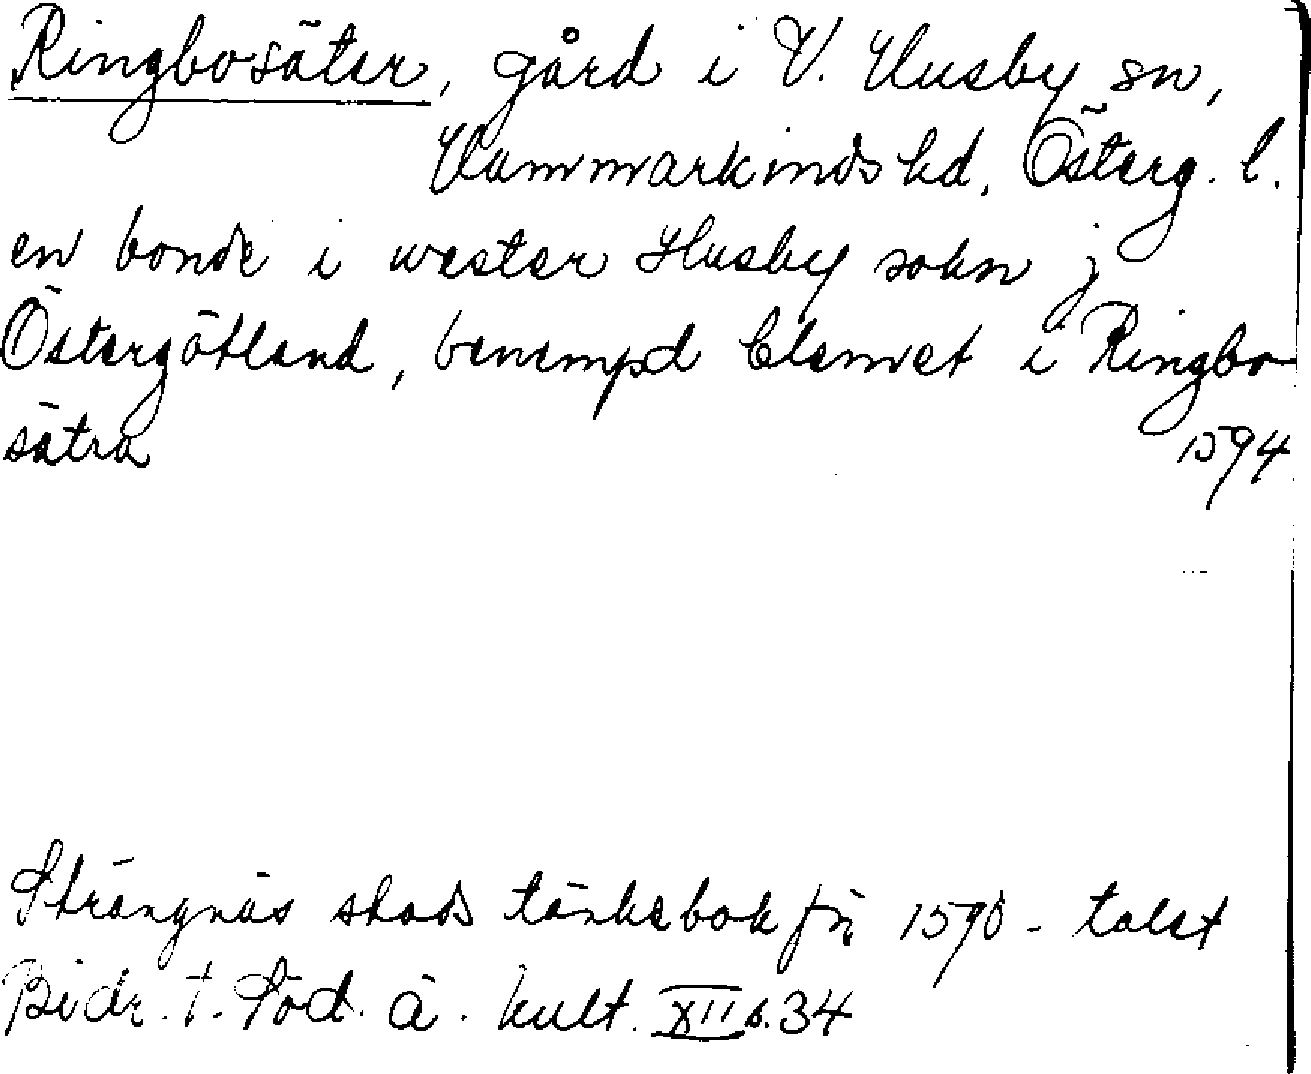 Ringbosäter, gård i V. Husby sn,
Hammarkinds hd, Österg. l.
en bonde i wester Husby sokn j
Östergötland, benempd Clemet i Ringbo
sätra 1594
Strängnäs stads tänkebok fr 1590-talet
Bidr. t. Söd. ä. kult. XII s. 34